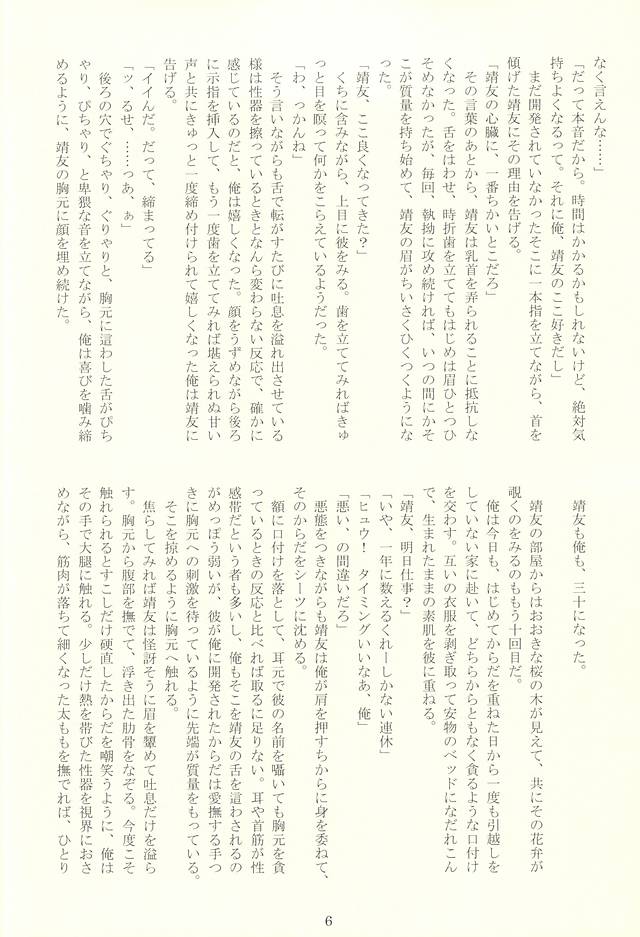 なく言えんな……」
「だって本音だから。時間はかかるかもしれないけど、絶対気
持ちよくなるって。それに俺、靖友のここ好きだし」
まだ開発されていなかったそこに一本指を立てながら、首を
傾げた靖友にその理由を告げる。
「靖友の心臓に、一番ちかいとこだろ」
その言葉のあとから、靖友は乳首を弄られることに抵抗しな
くなった。舌をはわせ、時折歯を立ててもはじめは眉ひとつひ
そめなかったが、毎回、執拗に攻め続ければ、いつの間にかそ
こが質量を持ち始めて、靖友の眉がちいさくひくつくようにな
った。
「靖友、ここ良くなってきた?」
くちに含みながら、上目に彼をみる。歯を立ててみればきゅ
っと目を瞑って何かをこらえているようだった。
「わ、っかんね」
そう言いながらも舌で転がすたびに吐息を溢れ出させている
様は性器を擦っているときとなんら変わらない反応で、確かに
感じているのだと、俺は嬉しくなった。顔をうずめながら後ろ
に示指を挿入して、もう一度歯を立ててみれば堪えられぬ甘い
声と共にきゅっと一度締め付けられて嬉しくなった俺は靖友に
告げる。
「イイんだ。だって、締まってる」
「ッ、るせ、……っあ、ぁ」
後ろの穴でぐちゃり、ぐりゃりと、胸元に這わした舌がぴち
ゃり、ぴちゃり、と卑猥な音を立てながら、俺は喜びを噛み締
めるように、靖友の胸元に顔を埋め続けた。
靖友も俺も、三十になった。
靖友の部屋からはおおきな桜の木が見えて、共にその花弁が
覗くのをみるのももう十回目だ。
俺は今日も、はじめてからだを重ねた日から一度も引越しを
していない家に赴いて、どちらからともなく貪るような口付け
を交わす。互いの衣服を剥ぎ取って安物のベッドになだれこん
で、生まれたままの素肌を彼に重ねる。
「靖友、明日仕事?」
「いや、一年に数えるくれーしかない連休」
「ヒュウ! タイミングいいなあ、俺」
「悪い、の間違いだろ」
悪態をつきながらも靖友は俺が肩を押すちからに身を委ねて、
そのからだをシーツに沈める。
額に口付けを落として、耳元で彼の名前を囁いても胸元を貪
っているときの反応と比べれば取るに足りない。耳や首筋が性
感帯だという者も多いし、俺もそこを靖友の舌を這わされるの
がめっぽう弱いが、彼が俺に開発されたからだは愛撫する手つ
きに胸元への刺激を待っているように先端が質量をもっている。
そこを掠めるように胸元へ触れる。
焦らしてみれば靖友は怪訝そうに眉を顰めて吐息だけを溢ら
す。胸元から腹部を撫でて、浮き出た肋骨をなぞる。今度こそ
触れられるとすこしだけ硬直したからだを嘲笑うように、俺は
その手で大腿に触れる。少しだけ熱を帯びた性器を視界におさ
めながら、筋肉が落ちて細くなった太ももを撫でれば、ひとり
6